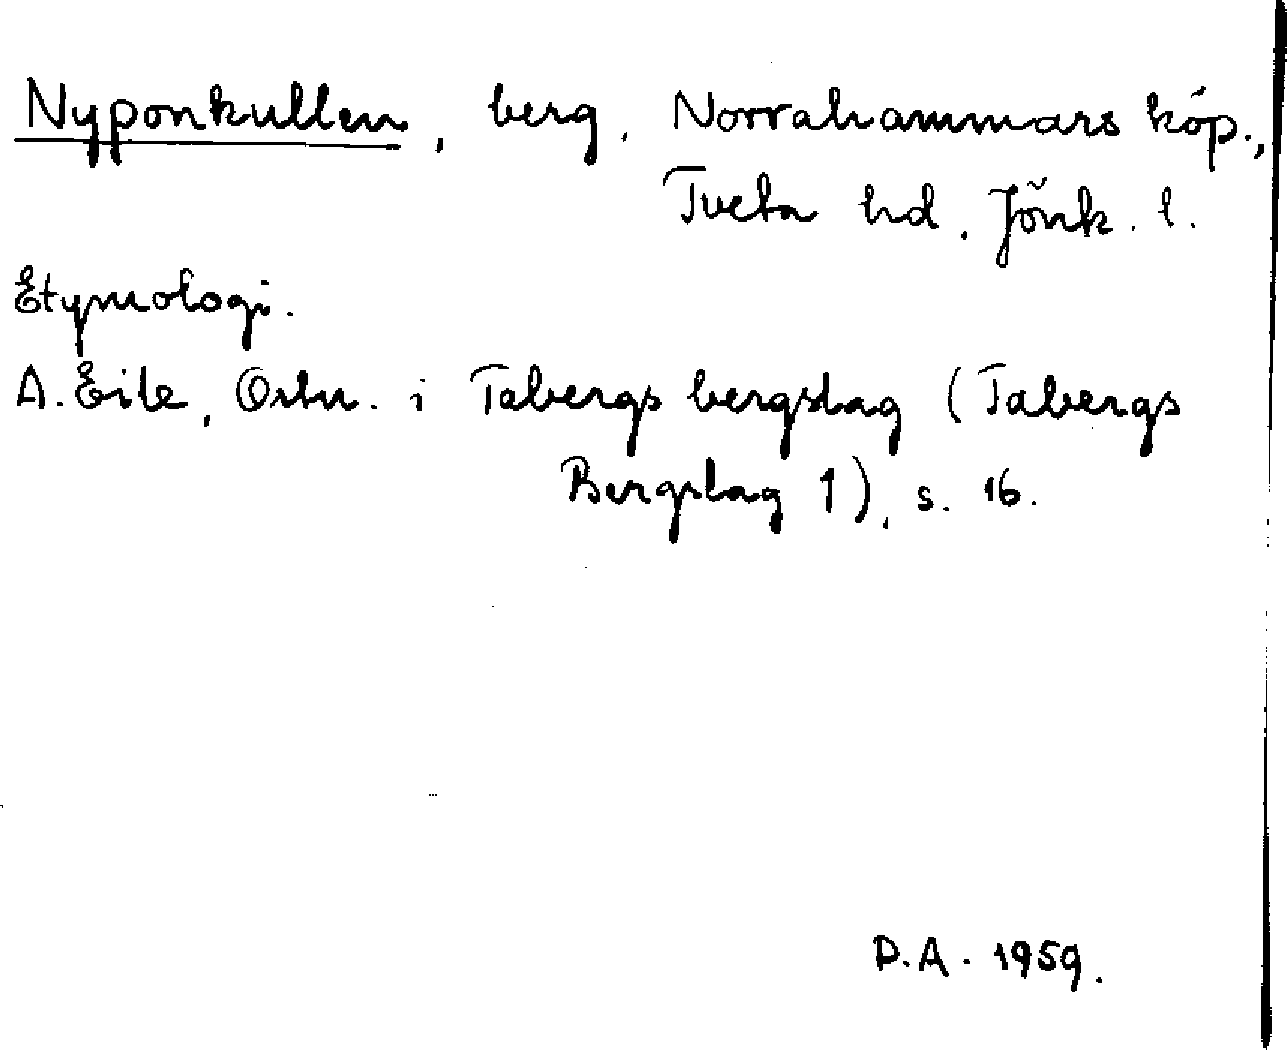 Nyponkullen, berg, Norrahammars köp.,
Tveta hd, Jönk. l.
Etymologi.
A. Eile, Ortn. i Tabergs bergslag (Tabergs
Bergslag 1), s. 16.
D.A. 1959.